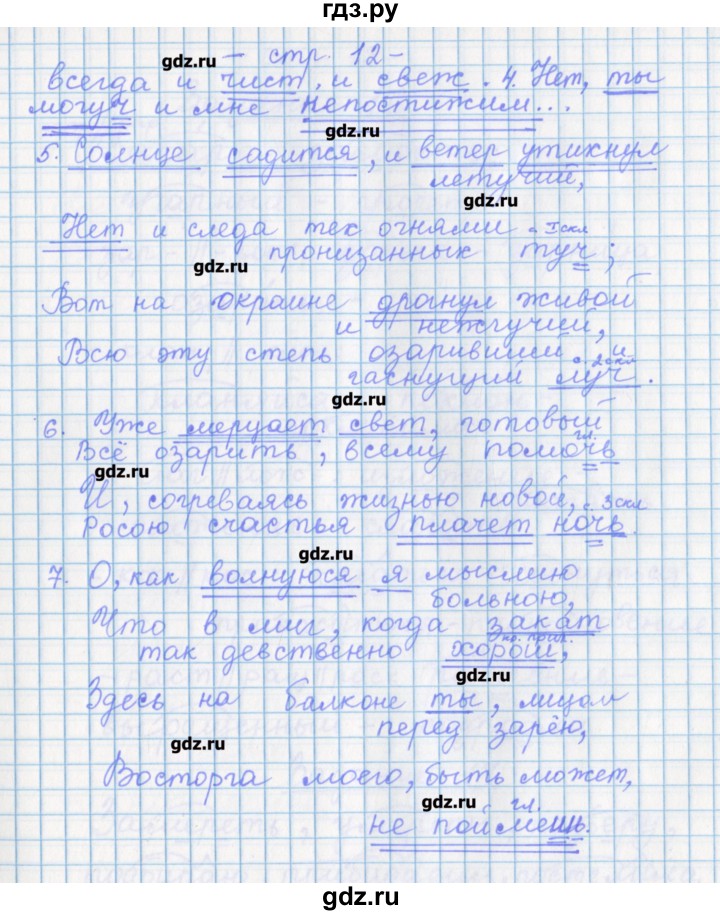 гдз.ру
gdz.ru
- стр. 12-
всегда и чист, и свеж. 4. Нет, ты
могуч и мне непостижим...
gdz.ru
5. Солнце садится, и ветер утихнул
летучий,
gdz.ru
Нет и следа тех огнями с. Iскл
пронизанных туч;
gdz.ru
Вот на окраине дрогнул живой
и нежгучий,
Всю эту степь озаривший и
с. 2скл
гаснущий луч.
gdz.ru
6. Уже мерцает свет, готовый
Всё озарить, всему помочь
гл.
gdz.ru
И, согреваясь жизнью новой,
с. 3скл
Росою счастья плачет ночь.
gdz.ru
7. О, как волнуюся я мыслию
больною,
Что в миг, когда закат
кр. прил.
так девственно хорош,
gdz.ru
Здесь на балконе ты, лицом
перед зарёю,
gdz.ru
Восторга моего, быть может,
gdz.ru гл.
не поймешь.
gdz.ru